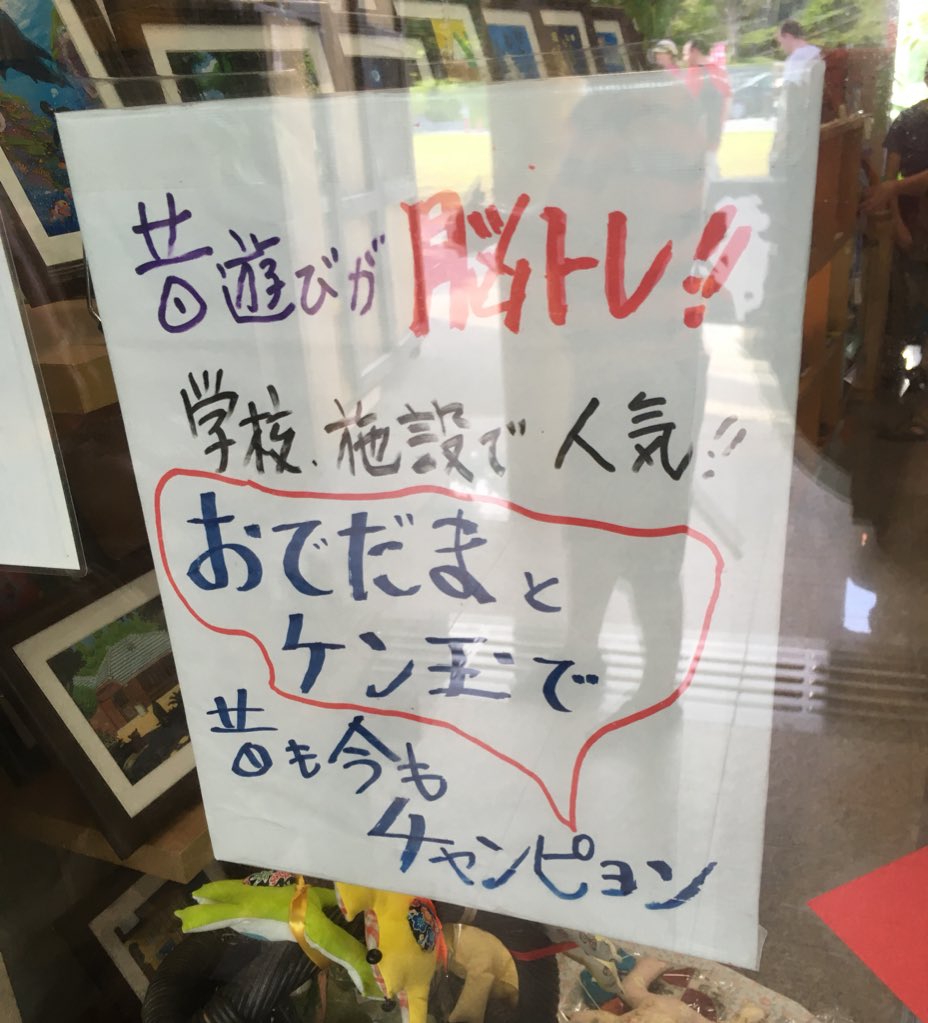 昔遊びが脳トレ!!
学校、施設で人気!!
おでだまと
ケン玉で
昔も今も
チャンピョン